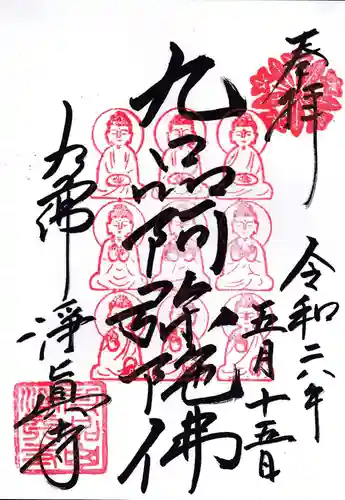 奉拝
令和六年
五月十五日
九品阿弥陀佛
九品佛
淨眞寺